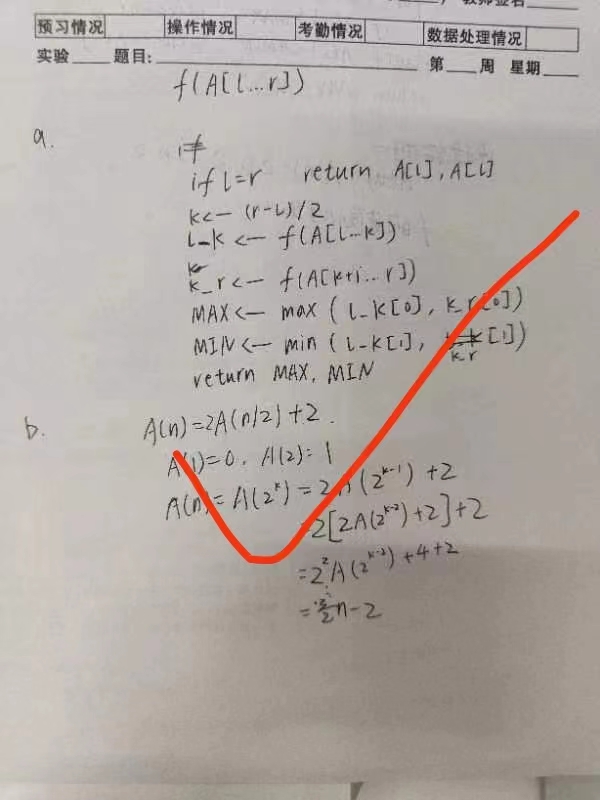 教师签名
预习情况 操作情况 考勤情况 数据处理情况
实验____题目:____ 第____周 星期____
f(A[l...r])
a.
if l=r return A[l], A[l]
k<-(r-l)/2
l_k <- f(A[l...k])
k_r <- f(A[k+1...r])
MAX <- max(l_k[0], k_r[0])
MIN <- min(l_k[1], k_r[1])
return MAX, MIN
b. A(n)=2A(n/2)+2.
A(1)=0, A(2)=1
A(n)=A(2^k)=2A(2^{k-1})+2
=2[2A(2^{k-2})+2]+2
=2^2A(2^{k-2})+4+2
=\frac{3}{2}n-2